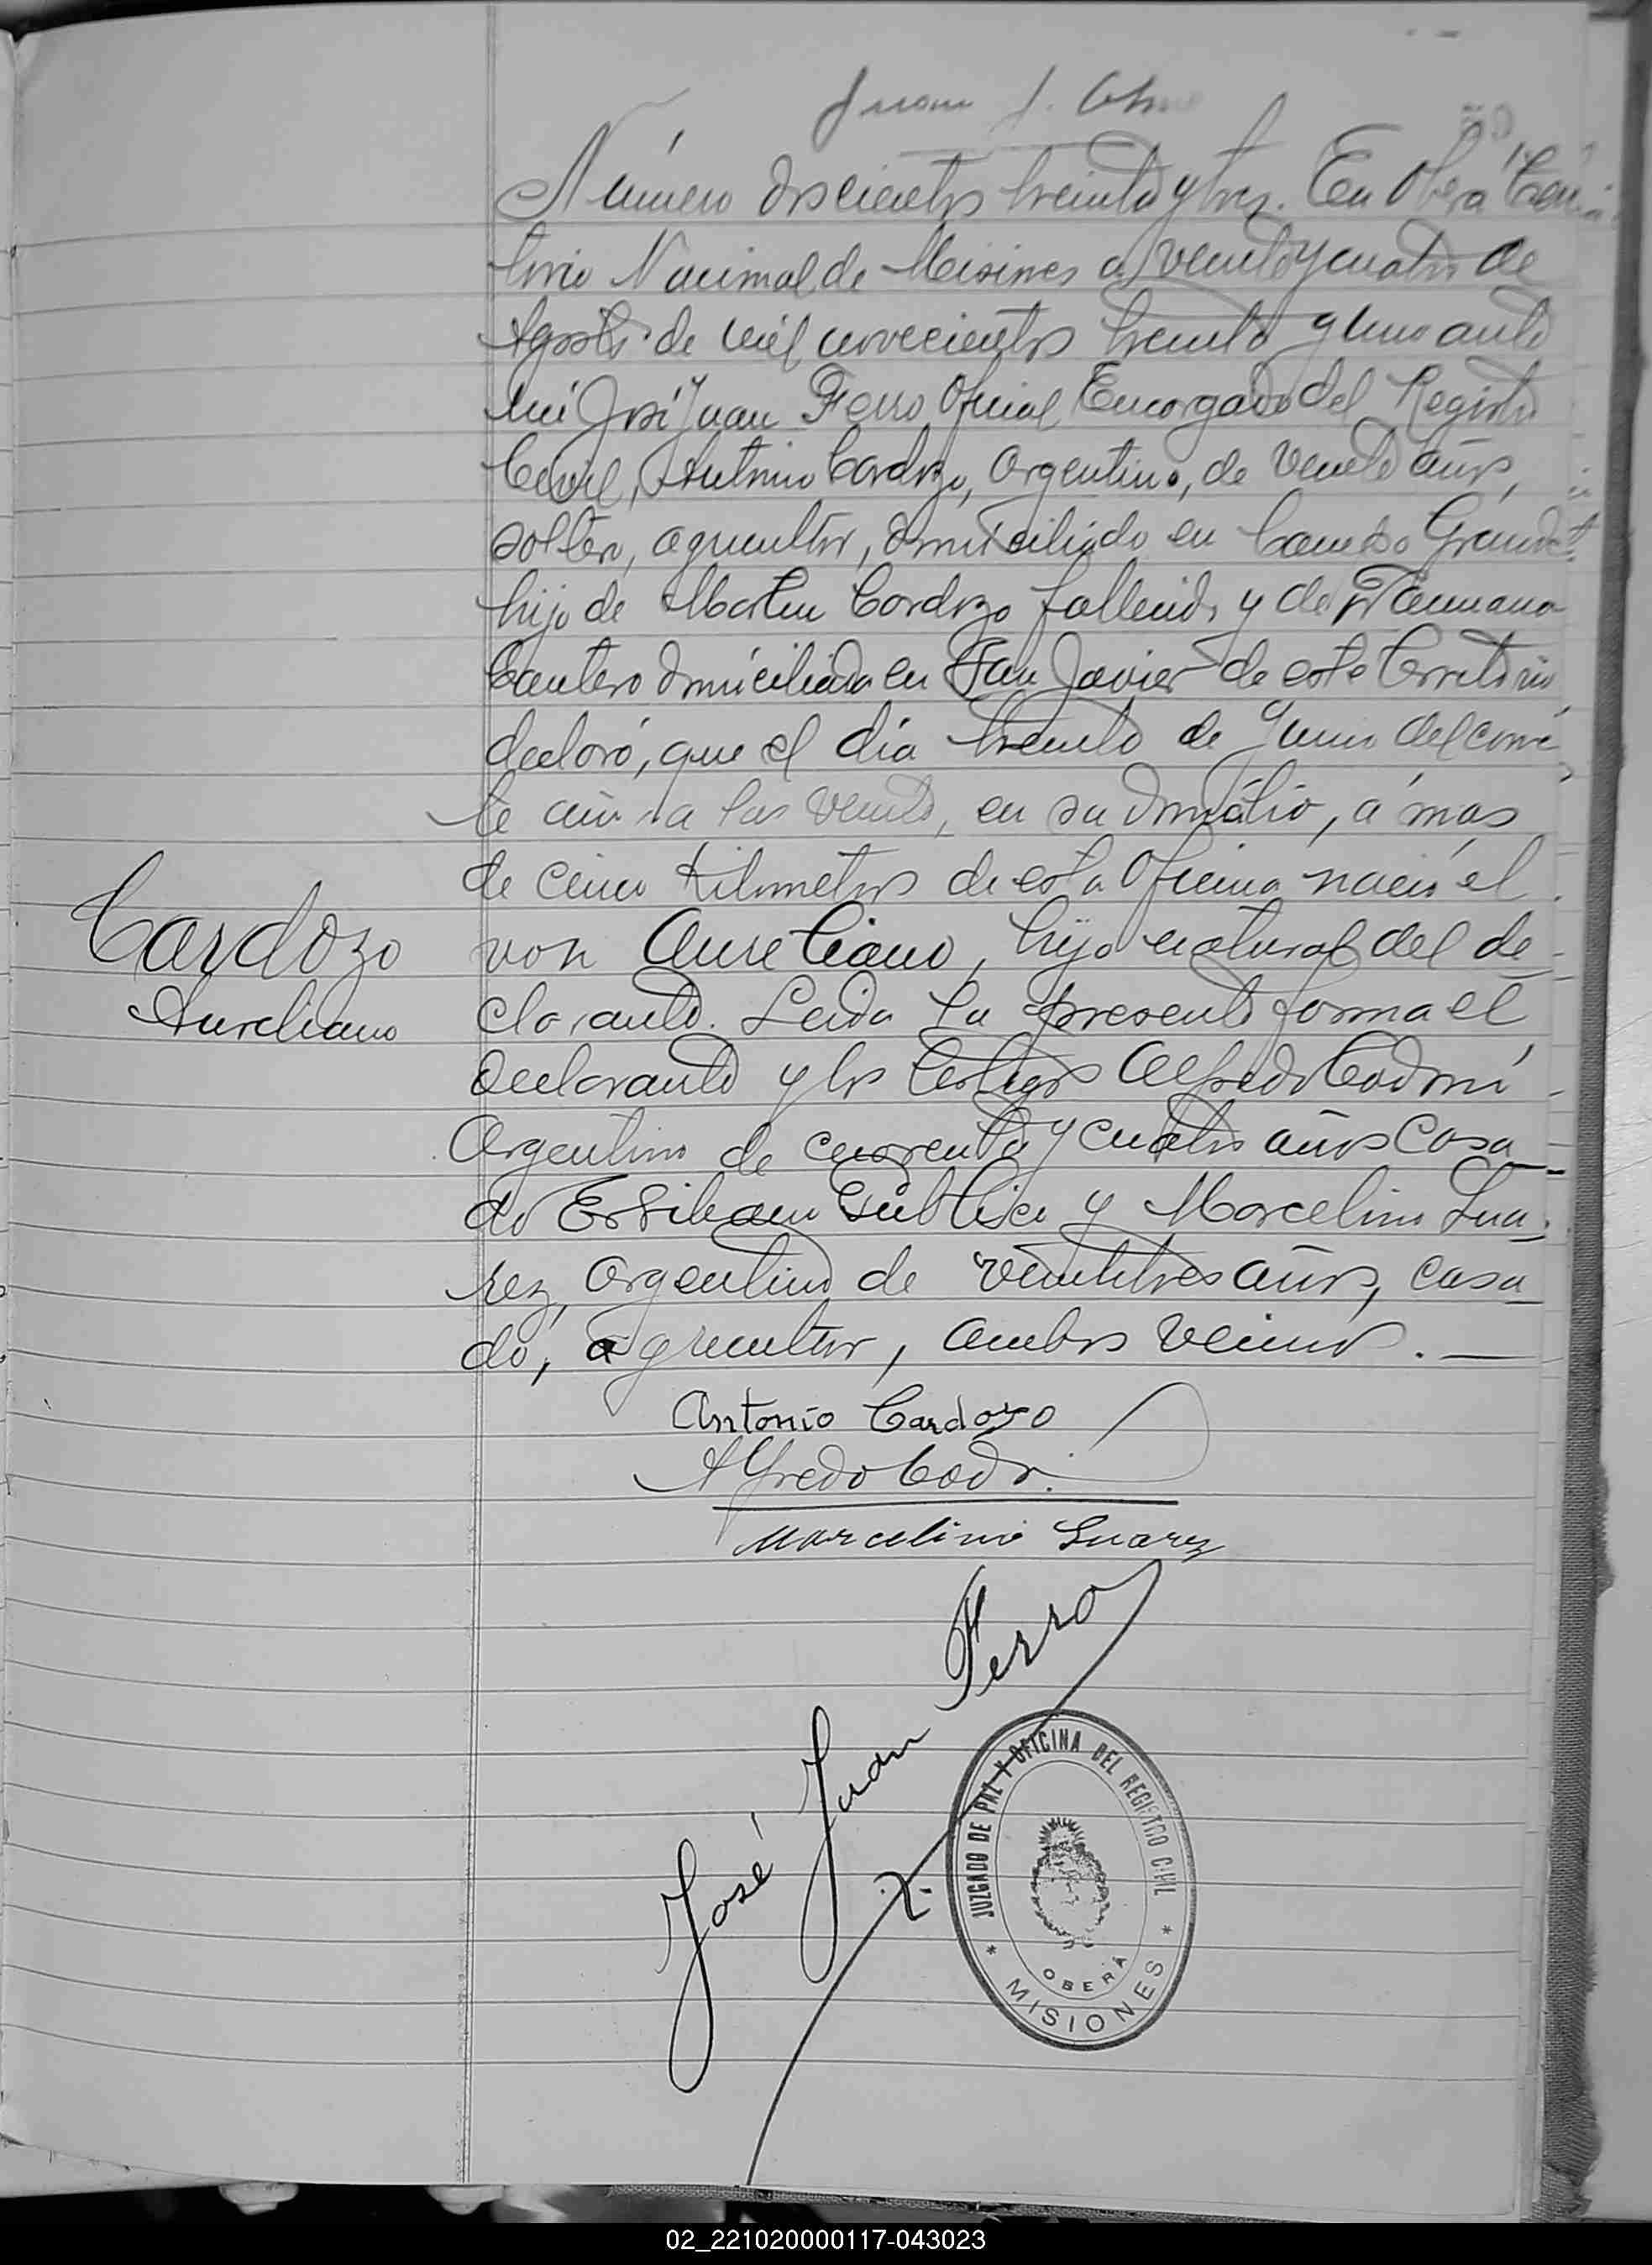 Número doscientos treinta y tres. En Oberá Terri
torio Nacional de Misiones a veinte y cuatro de
Agosto de mil novecientos treinta y uno ante
mí José Juan Ferro Oficial Encargado del Registro
Civil, Antonio Cardozo, Argentino, de veinte años,
soltero, agricultor, domiciliado en Campo Grande
hijo de Martin Cardozo fallecido y de
Cantero domiciliada en San Javier de este Territorio
declaró, que el día treinta de Junio del corrien
te año a las veinte, en su domicilio, á mas
de cinco Kilometros de esta Oficina nació el
varon Aureliano, hijo natural del de-
Cardozo
Aureliano
clarante. Leida la presente forma el
declarante y los testigos Alfredo Codoni
Argentino de cuarenta y cuatro años Casa-
do Escribano Público y Marcelino Sua-
rez, Argentino de veintitres años, casa-
do, agricultor, ambos vecinos.—
Antonio Cardozo
Alfredo Codoni
Marcelino Suarez
José Juan Ferro
JUZGADO DE PAZ Y OFICINA DEL REGISTRO CIVIL
OBERÁ
* MISIONES *
02_221020000117-043023